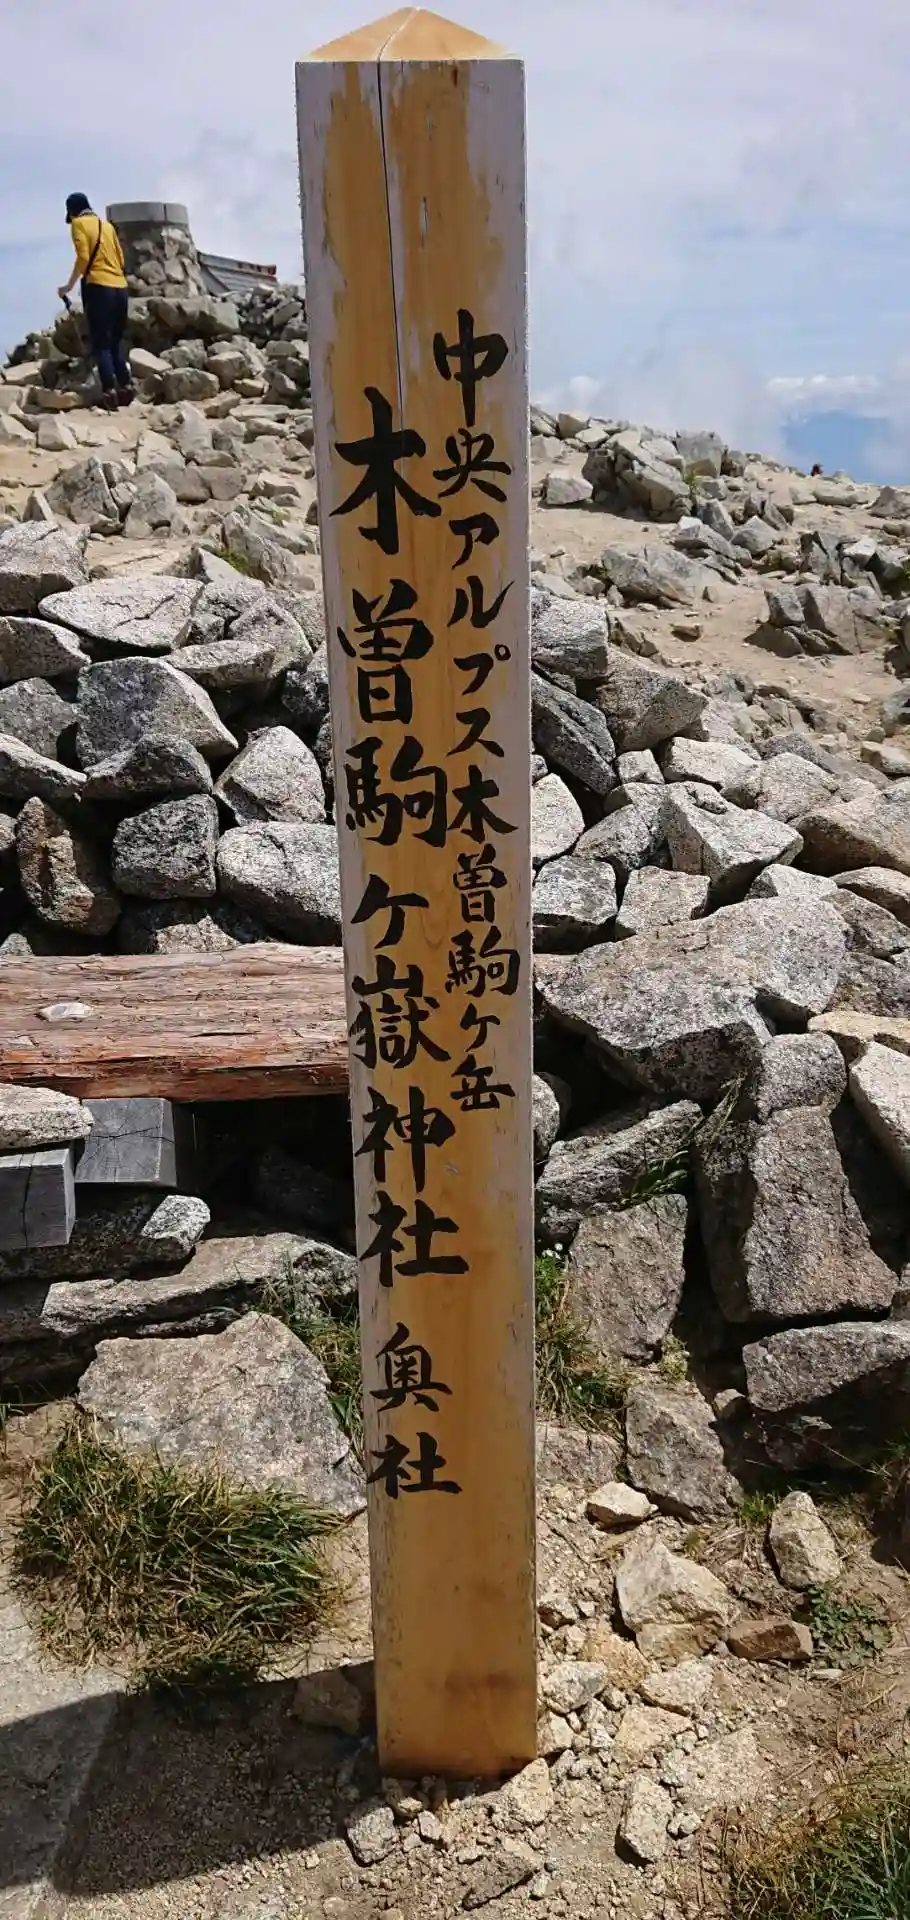 中央アルプス木曽駒ケ岳
木曽駒ケ嶽神社 奥社